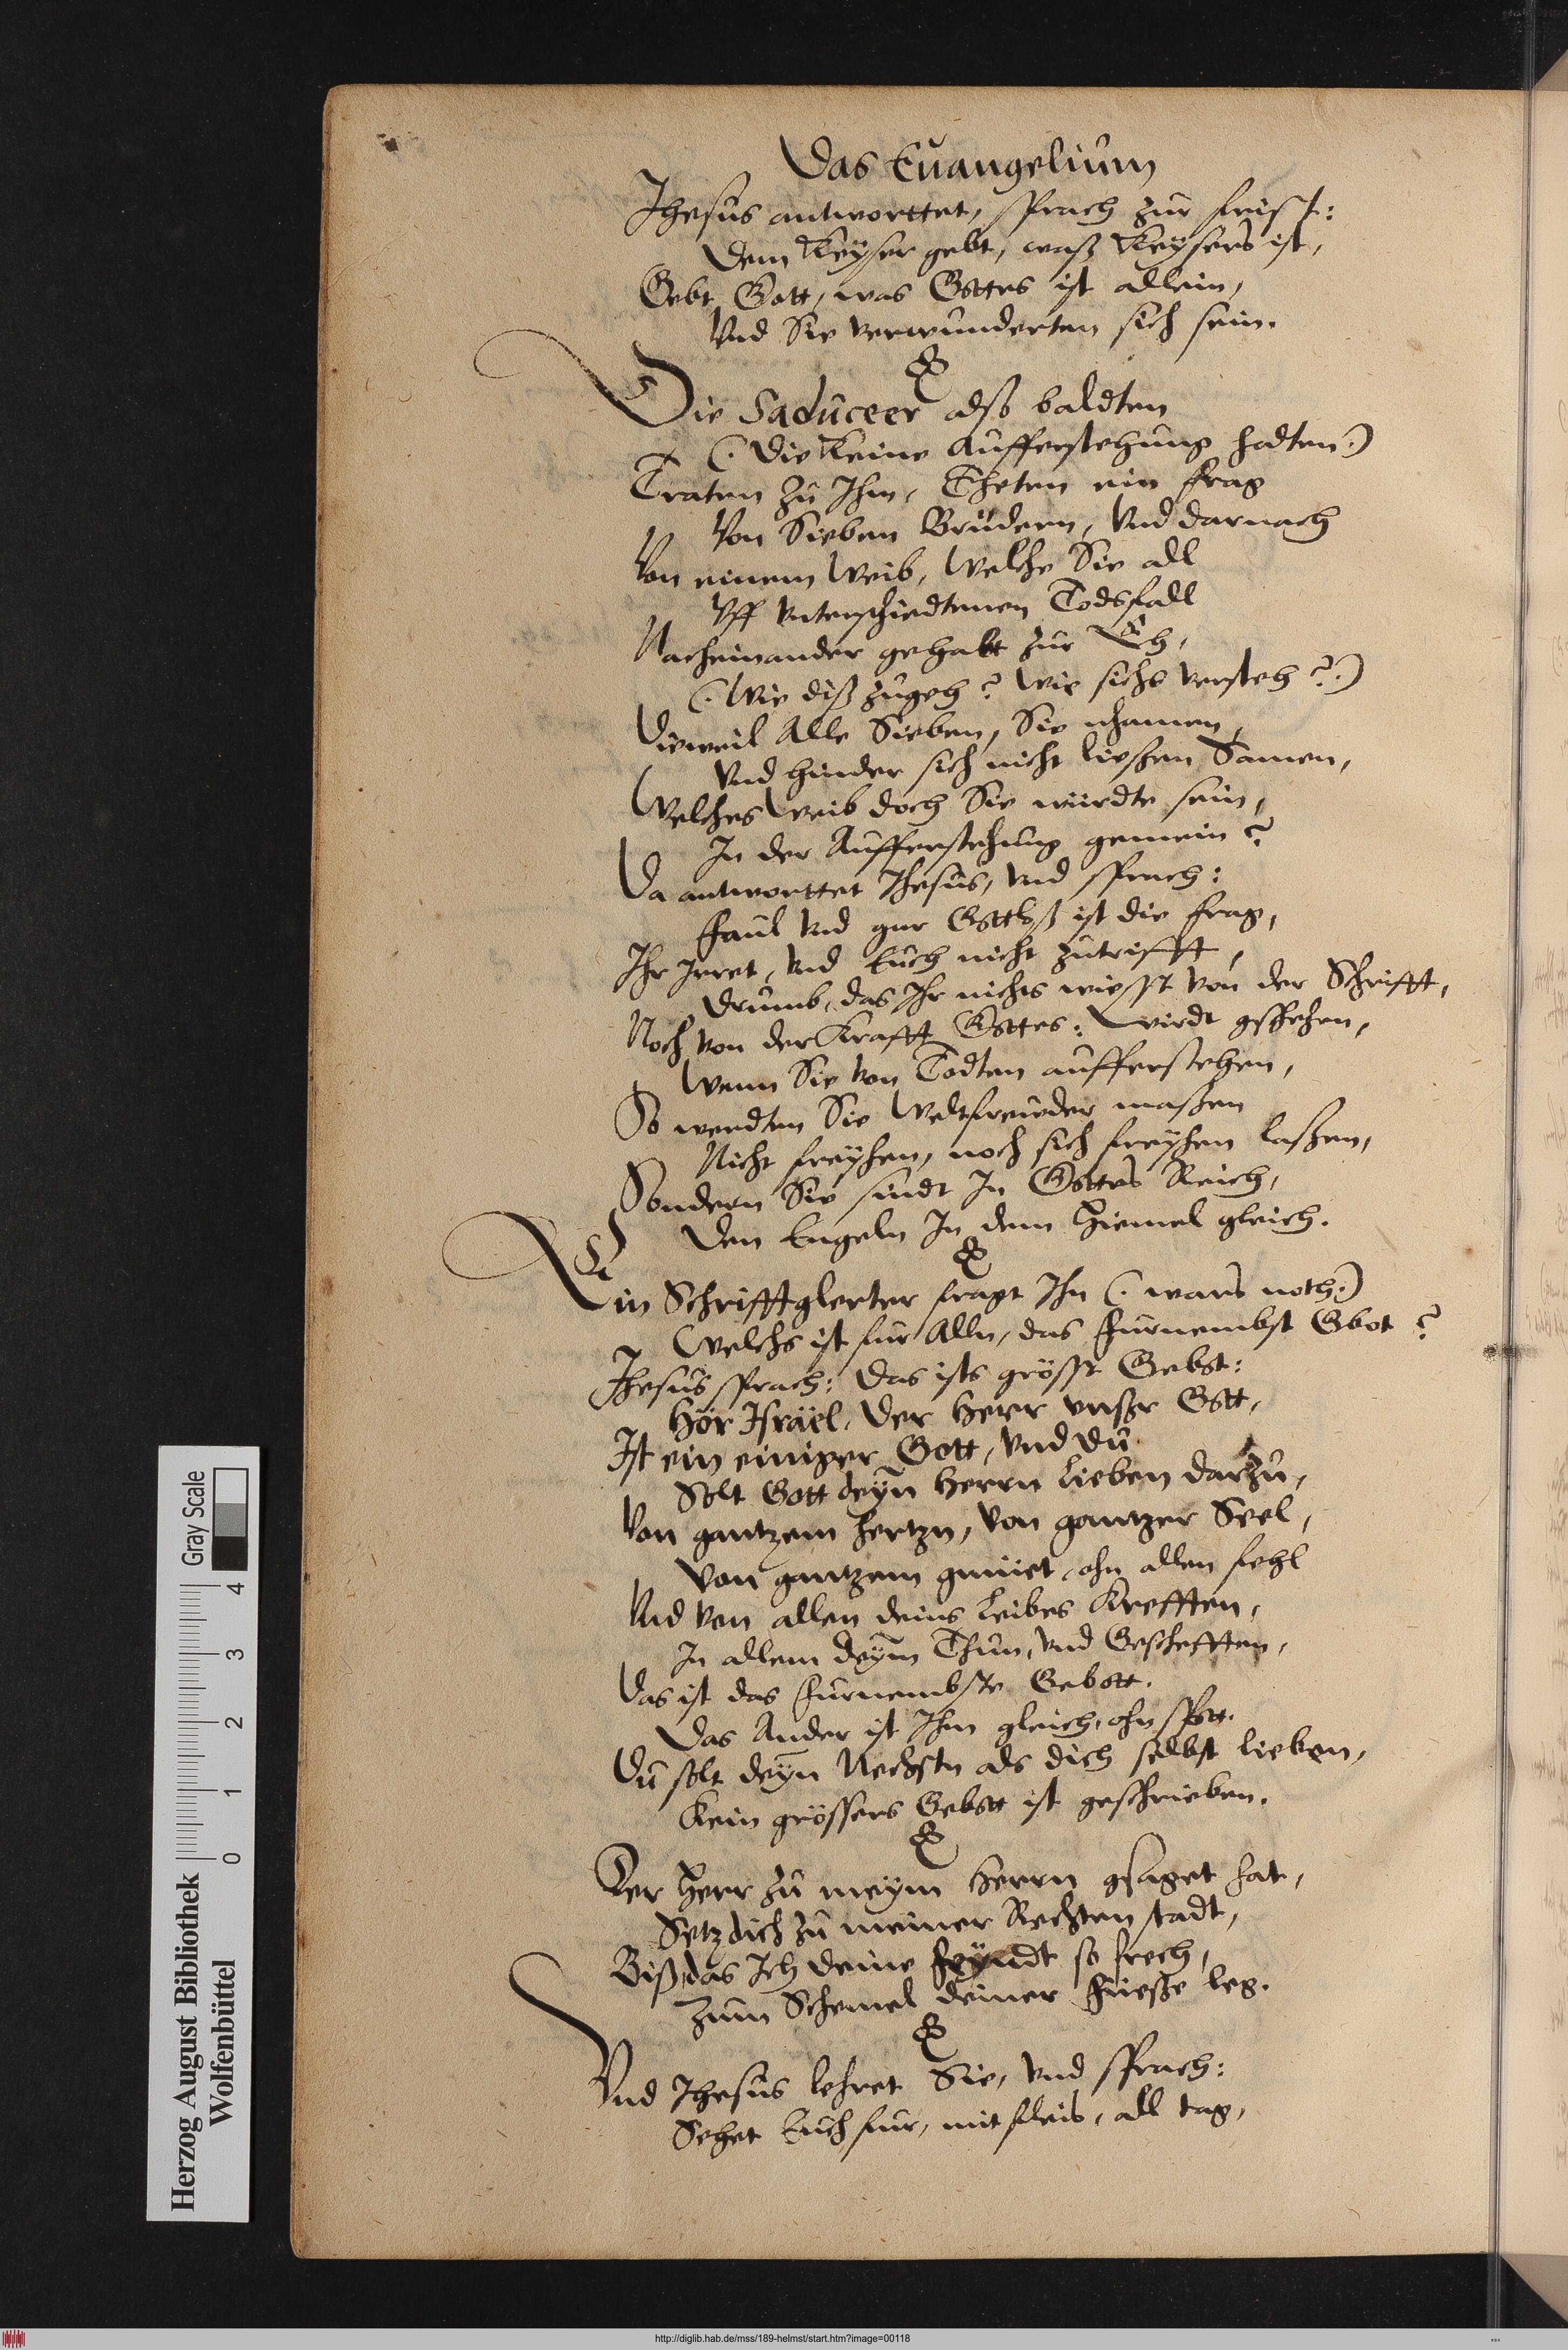 Das Euangelium
Jhesus antworttet, sprach zur frist:
Dem Keyser gebt, waß Keysers ist,
Gebt Gott, was Gottes ist allein,
Vnd Sie verwunderten sich sein.
Die Saduceer alßo baldten
(: die Keine Aufferstehung halten :)
Traten zu Jhm, Theten ein frag
Von Sieben Brüdern, Vnd darnach
Von einem Weib, Welche Sie all
Vff vnterschiedtenen Todsfall
Nacheinander gehabt zur Eh,
(: Wie diß zugeh? wie sichs versteh? :)
Dieweil Alle Sieben, Sie nhamen,
Vnd hinder sich nicht ließen Samen,
Welches Weib doch Sie würdte sein,
Jn der Aufferstehung gemein?
Da antworttet Jhesus, vnd sprach:
Faul vnd gar Gottloß ist die frag,
Jhr Jrret, vnd Euch nicht zutrifft,
Drumb, das Jhr nichts wisst von der Schrifft,
Noch von der Krafft Gottes: Wirdt gschehen,
Wenn Sie von Todten aufferstehen,
So werdten Sie Weltkinder maßen
Nicht freyhen, noch sich freyhen laßen,
Sondern Sie sindt Jn Gottes Reich,
Den Engeln Jn dem Hiemel gleich.
Ein Schrifftglerter fragt Jhn (: wars noth :)
Welchs ist fur Alln, das furnembst Gbot?
Jhesus sprach: Das ists grösst Gebot:
Hör Jsräel, Der Herr vnßer Gott,
Jst ein einiger Gott, Vnd Du
Solt Gott deyn Herrn Lieben darzu,
Von gantzem hertzn, Von gantzer Seel,
Von gantzem gmüet, ohn allen fehl
Vnd von allen deins Leibes Krefften,
Jn allem deym Thun, vnd Geschefften,
Das ist das furnembste Gebott.
Das Ander ist Jhm gleich, ohn spott.
Du solt deyn Nechstn als dich selbst lieben,
Kein grössers Gebott ist geschrieben.
Der Herr zu meym Herrn gsaget hat,
Setz dich zu meiner Rechten stadt,
Biß, das Jch deine feyndt so frech,
Zum Schemel deiner Fueße leg.
Vnd Jhesus lehret Sie, vnd sprach:
Sehet Euch fur, mit fleis, all tag,
Herzog August Bibliothek
Wolfenbüttel
0 1 2 3 4
Gray Scale
http://diglib.hab.de/mss/189-helmst/start.htm?image=00118